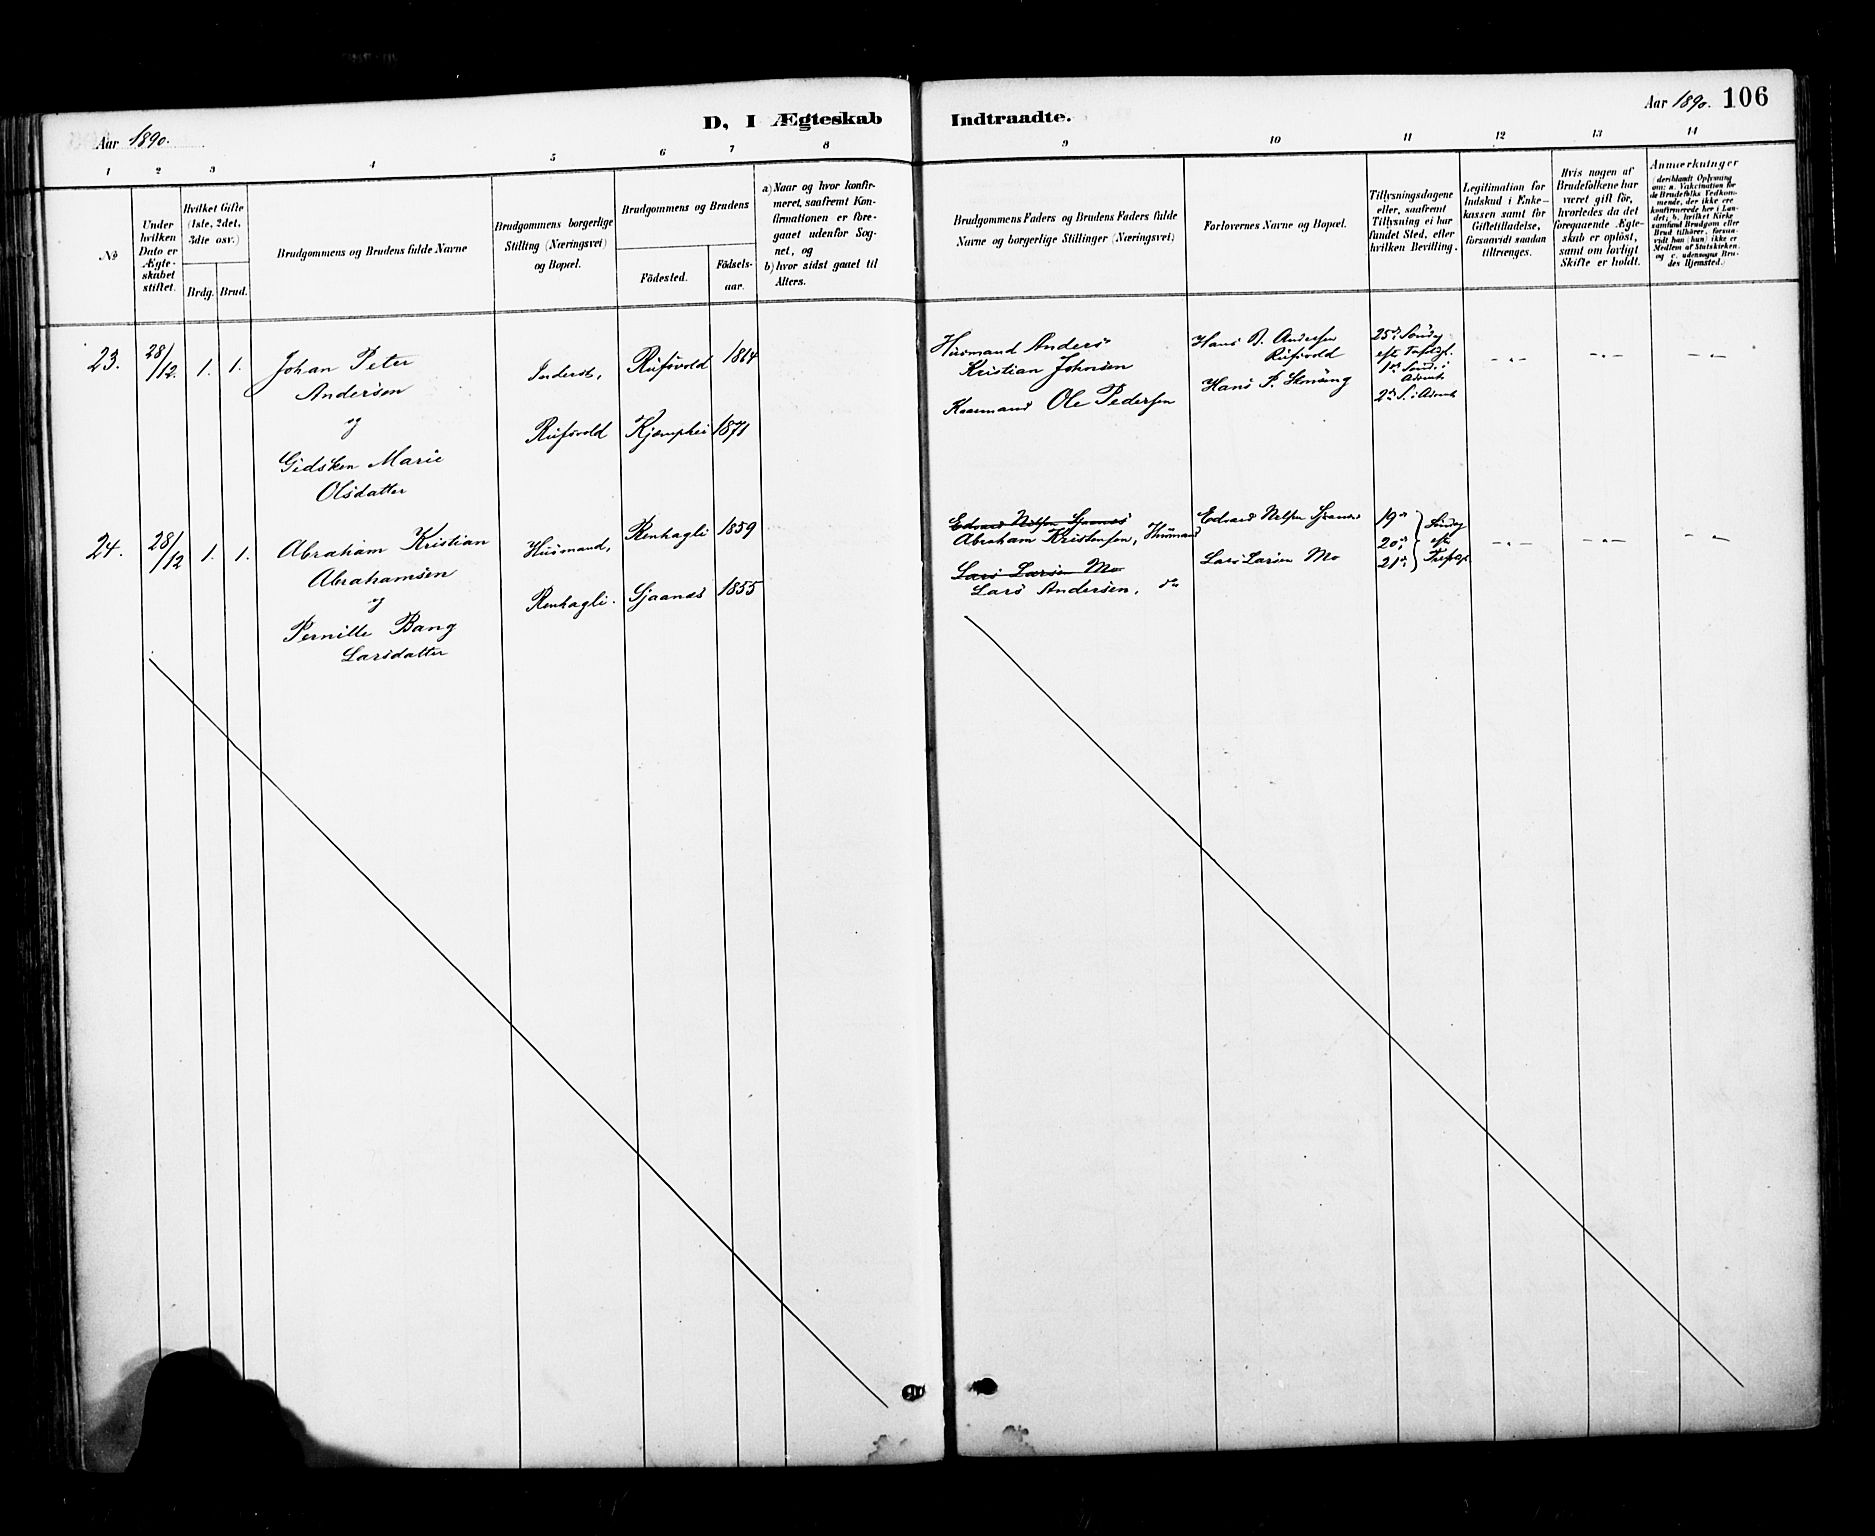 Aar 1890.
D, I Ægteskab
Indtraadte.
Aar 1890.
106
1 2 3 4 5 6 7 8 9 10 11 12 13 14
No
Under
hvilken
Dato er
Ægte-
skabet
stiftet.
Hvilket Gifte
(1ste, 2det,
3die osv.)
Brdg. Brud.
Brudgommens og Brudens fulde Navne
Brudgommens borgerlige
Stilling (Næringsvei)
og Bopæl.
Brudgommens og Brudens
Födested.
Födsels-
aar.
a) Naar og hvor konfir-
meret, saafremt Kon-
firmationen er fore-
gaaet udenfor Sog-
net, og
b) hvor sidst gaaet til
Alters.
Brudgommens Faders og Brudens Faders fulde
Navne og borgerlige Stillinger (Næringsvei)
Forlovernes Navne og Bopæl.
Tillysningsdagene
eller, saafremt
Tillysning ei har
fundet Sted, efter
hvilken Bevilling.
Legitimation for
Indskud i Enke-
kassen samt for
Giftetilladelse,
forsaavidt saadan
tiltrænges.
Hvis nogen af
Brudefolkene har
været gift før,
hvorledes da det
foregaaende Ægte-
skab er oplöst,
samt om lovligt
Skifte er holdt.
Anmærkninger
(deriblandt Oplysning
om: a. Vakcination for
de Brudefolks Vedkom-
mende, der ikke ere
konfirmerede her i Lan-
det; b. hvilket Kirke
samfund Brudgom eller
Brud tilhører, forsaa-
vidt han (hun) ikke er
Medlem af Statskirken,
og c. udensogns Bru-
des Hjemsted.)
23. 28/12. 1. 1.
Johan Peter
Andersen
og
Gidsken Marie
Olsdatter
Inderst,
Rufsvold
Rufsvold 1864
Kjæmphei 1871
Husmand Anders
Kristian Johnsen
Kaarmand Ole Pedersen
Hans A. Andersen
Rufsvold
Hans P.
25de Söndg
eft. Trefdgf.
1ste Sønd. i
Advent
2den S. i Advent
- " - - " - - " -
24. 28/12 1. 1.
Abraham Kristian
Abrahamsen
og
Pernille Bang
Larsdatter
Husmand,
Renhagli.
Renhagli 1859
Sjaanes 1855
Edvard Nilsen Sjaanes
Abraham Kristensen, Husmand
Lars Larsen Mo
Lars Andersen, do
Edvard Nilsen Sjaanes
Lars Larsen Mo
19de
20de
21de
Söndg
eft
Trefdgf
- " - - " - - " -